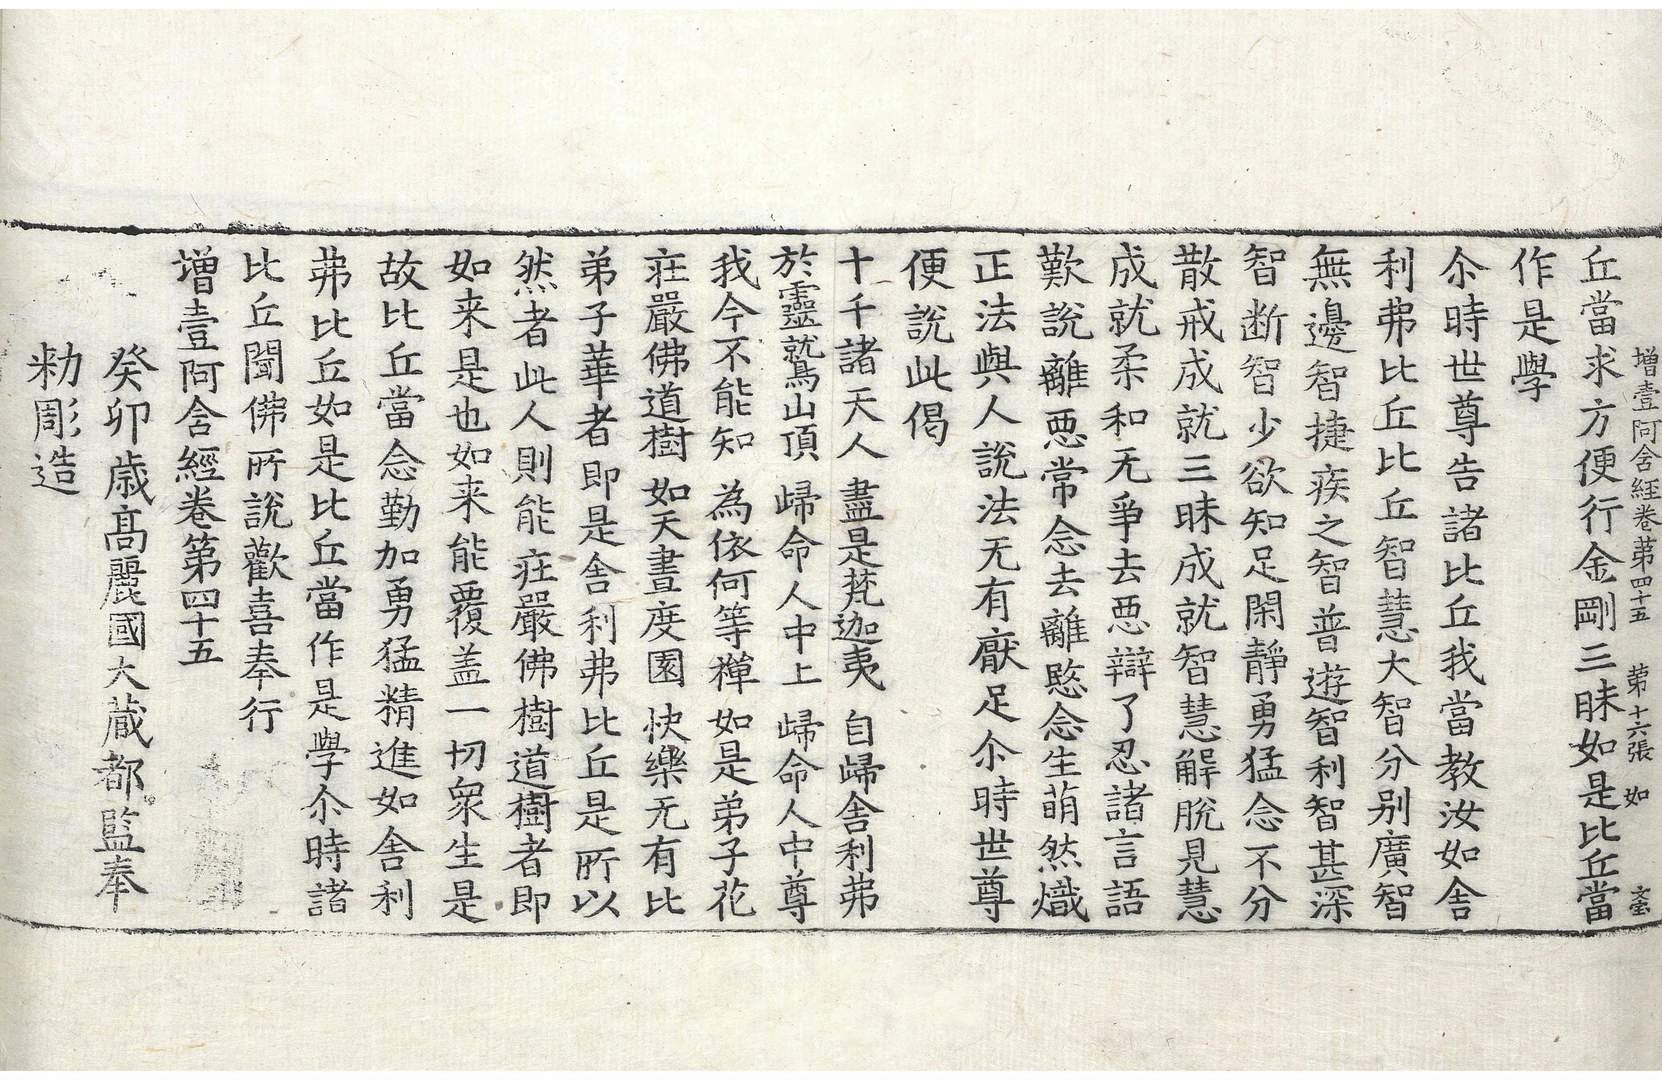 增壹阿含経卷第四十五 第十六張 如
丘當求方便行金剛三昧如是比丘當
作是學
尒時世尊告諸比丘我當教汝如舍
利弗比丘比丘智慧大智分别廣智
無邊智捷疾之智普遊智利智甚深
智断智少欲知足閑靜勇猛念不分
散戒成就三昧成就智慧解脫見慧
成就柔和无爭去惡辯了忍諸言語
歎說離惡常念去離愍念生萌然熾
正法與人說法无有厭足尒時世尊
便說此偈
十千諸天人 盡是梵迦夷 自歸舍利弗
於靈鷲山頂 歸命人中上 歸命人中尊
我今不能知 為依何等禪 如是弟子花
莊嚴佛道樹 如天晝度園 快樂无有比
弟子華者即是舍利弗比丘是所以
然者此人則能莊嚴佛樹道樹者即
如来是也如来能覆盖一切衆生是
故比丘當念勤加勇猛精進如舍利
弗比丘如是比丘當作是學尒時諸
比丘聞佛所說歡喜奉行
增壹阿含經卷第四十五
癸卯歲高麗國大藏都監奉
勑彫造